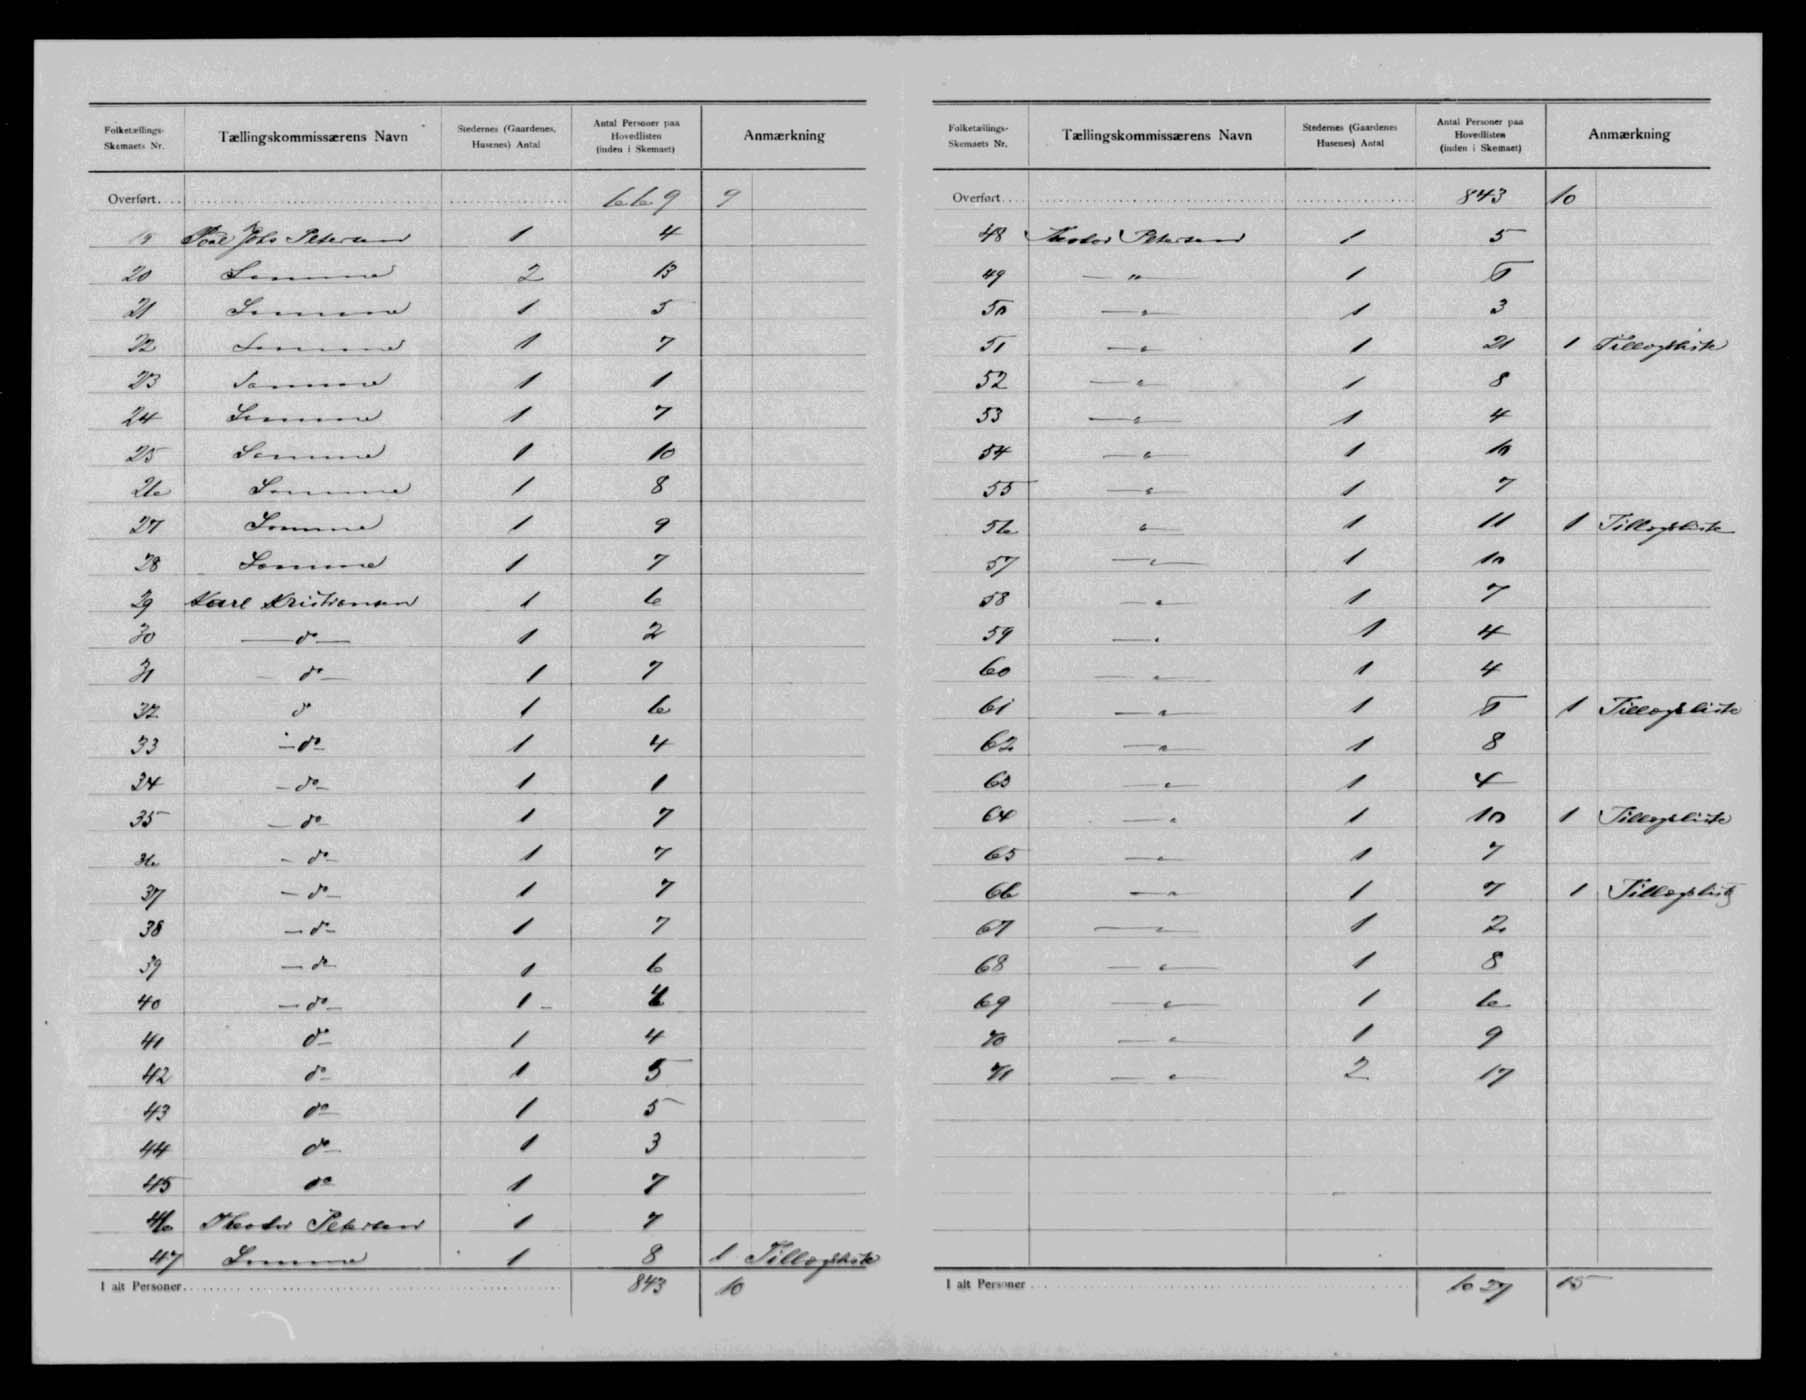 Folketællings-Skemaets Nr. Tællingskommissærens Navn Stedernes (Gaardenes, Husenes) Antal Antal Personer paa Hovedlisten (inden i Skemaet) Anmærkning
Overført 669 9
19 Poul Johs Petersen 1 4
20 Samme 2 13
21 Samme 1 5
22 Samme 1 7
23 Samme 1 1
24 Samme 1 7
25 Samme 1 10
26 Samme 1 8
27 Samme 1 9
28 Samme 1 7
29 Karl Kristiansen 1 6
30 — do — 1 2
31 — do — 1 7
32 do 1 6
33 — do — 1 4
34 — do — 1 1
35 — do 1 7
36 — do — 1 7
37 — do — 1 7
38 — do — 1 7
39 — do — 1 6
40 — do — 1 - 4
41 do — 1 4
42 do — 1 5
43 do — 1 5
44 do — 1 3
45 do 1 7
46 Theodor Petersen 1 7
47 Samme 1 8 1 Tillægsliste
I alt Personer 843 10
Folketællings-Skemaets Nr. Tællingskommissærens Navn Stedernes (Gaardenes Husenes) Antal Antal Personer paa Hovedlisten (inden i Skemaet) Anmærkning
Overført 843 10
48 Theodor Petersen 1 5
49 — " — 1
50 — " — 1 3
51 — " — 1 21 1 Tillægsliste
52 — " — 1 8
53 — " — 1 4
54 — " — 1 10
55 — " — 1 7
56 " — 1 11 1 Tillægsliste
57 — " — 1 10
58 — " — 1 7
59 — " 1 4
60 — " — 1 4
61 — " — 1 1 Tillægsliste
62 — " — 1 8
63 — " — 1 4
64 — " 1 10 1 Tillægsliste
65 — " — 1 7
66 — " — 1 7 1 Tillægsliste
67 — " — 1 2
68 — " — 1 8
69 — " — 1 6
70 — " — 1 9
71 — " — 2 17
I alt Personer 1027 15